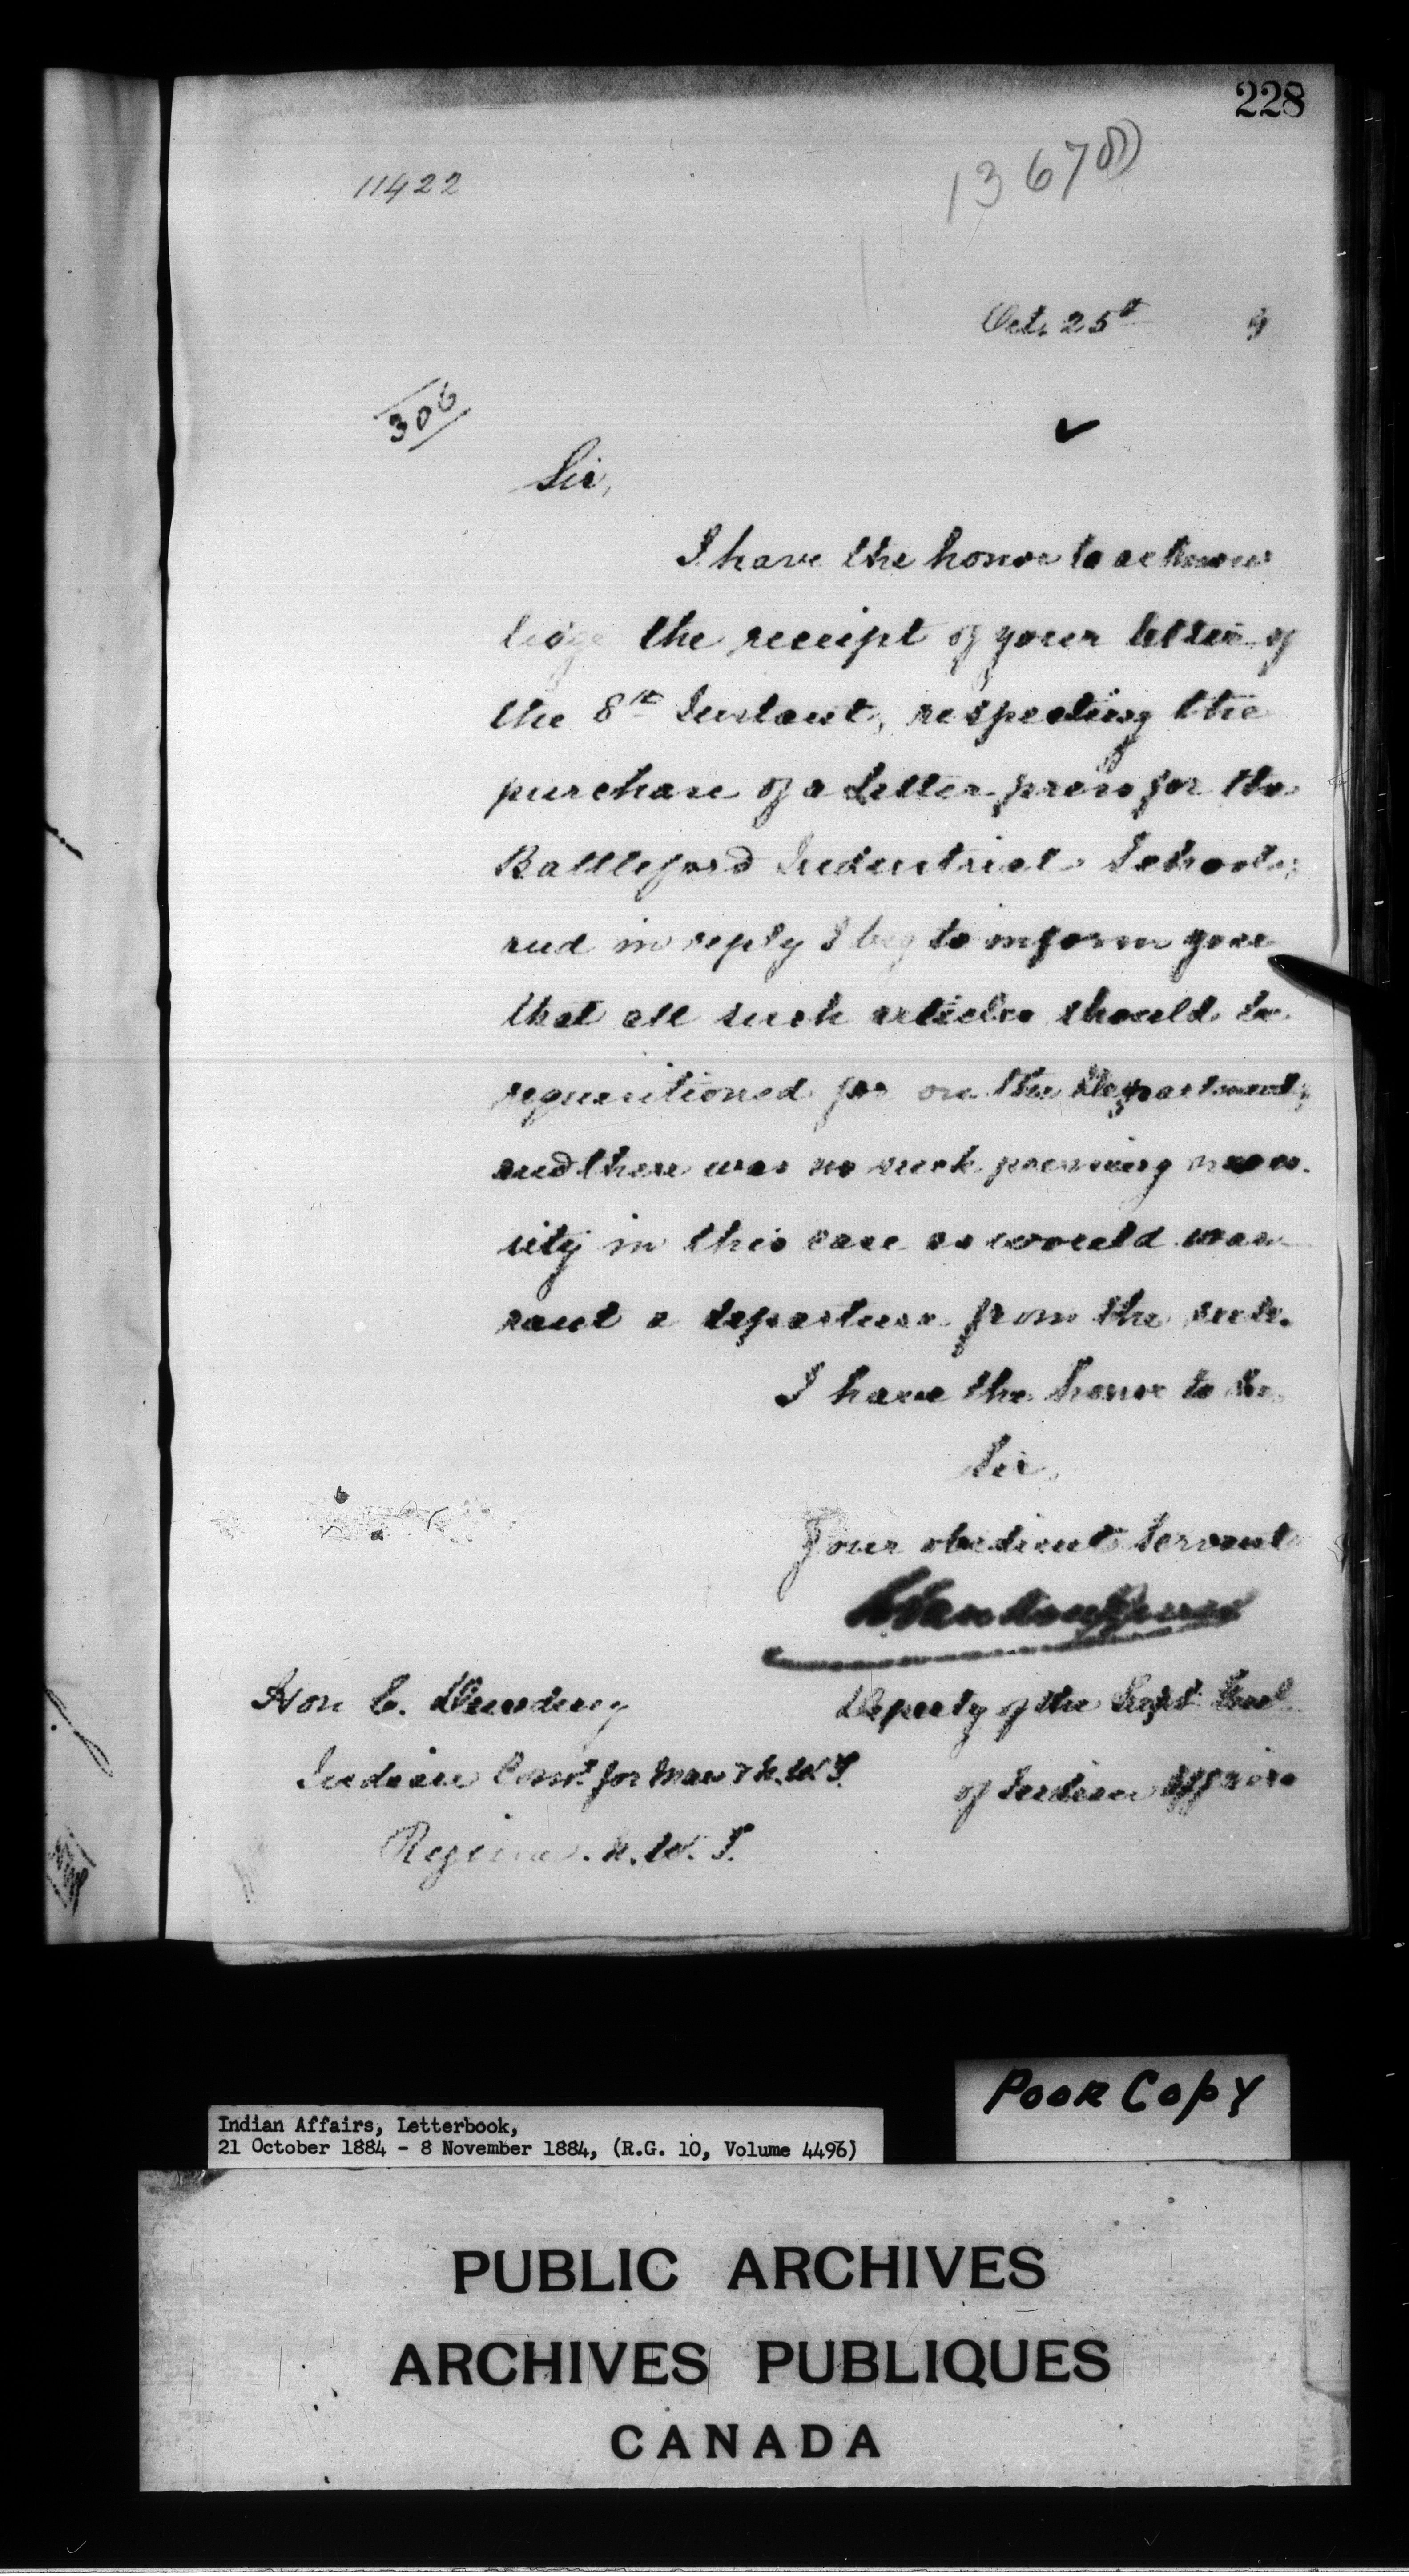 228
11422
Oct. 25th 4
306
Sir,
I have the honor to acknow
ledge the receipt of your letter of
the 8th Instant, respecting the
purchase of a Letter press for the
Battleford Industrial School;
and in reply I beg to inform you
that all such articles should be
requisitioned for on the Department;
and there was no such pressing neces-
sity in this case as would war-
rant a departure from the rule.
I have the honor to be,
Sir,
Your obedient Servant
L Vankoughnet
Hon E. Dewdney
Deputy of the Supt. Genl
Indian Comr. for Man & N.W.T.
of Indian Affairs
Regina. N.W.T.
POOR COPY
Indian Affairs, Letterbook,
21 October 1884 - 8 November 1884, (R.G. 10, Volume 4496)
PUBLIC ARCHIVES
ARCHIVES PUBLIQUES
CANADA